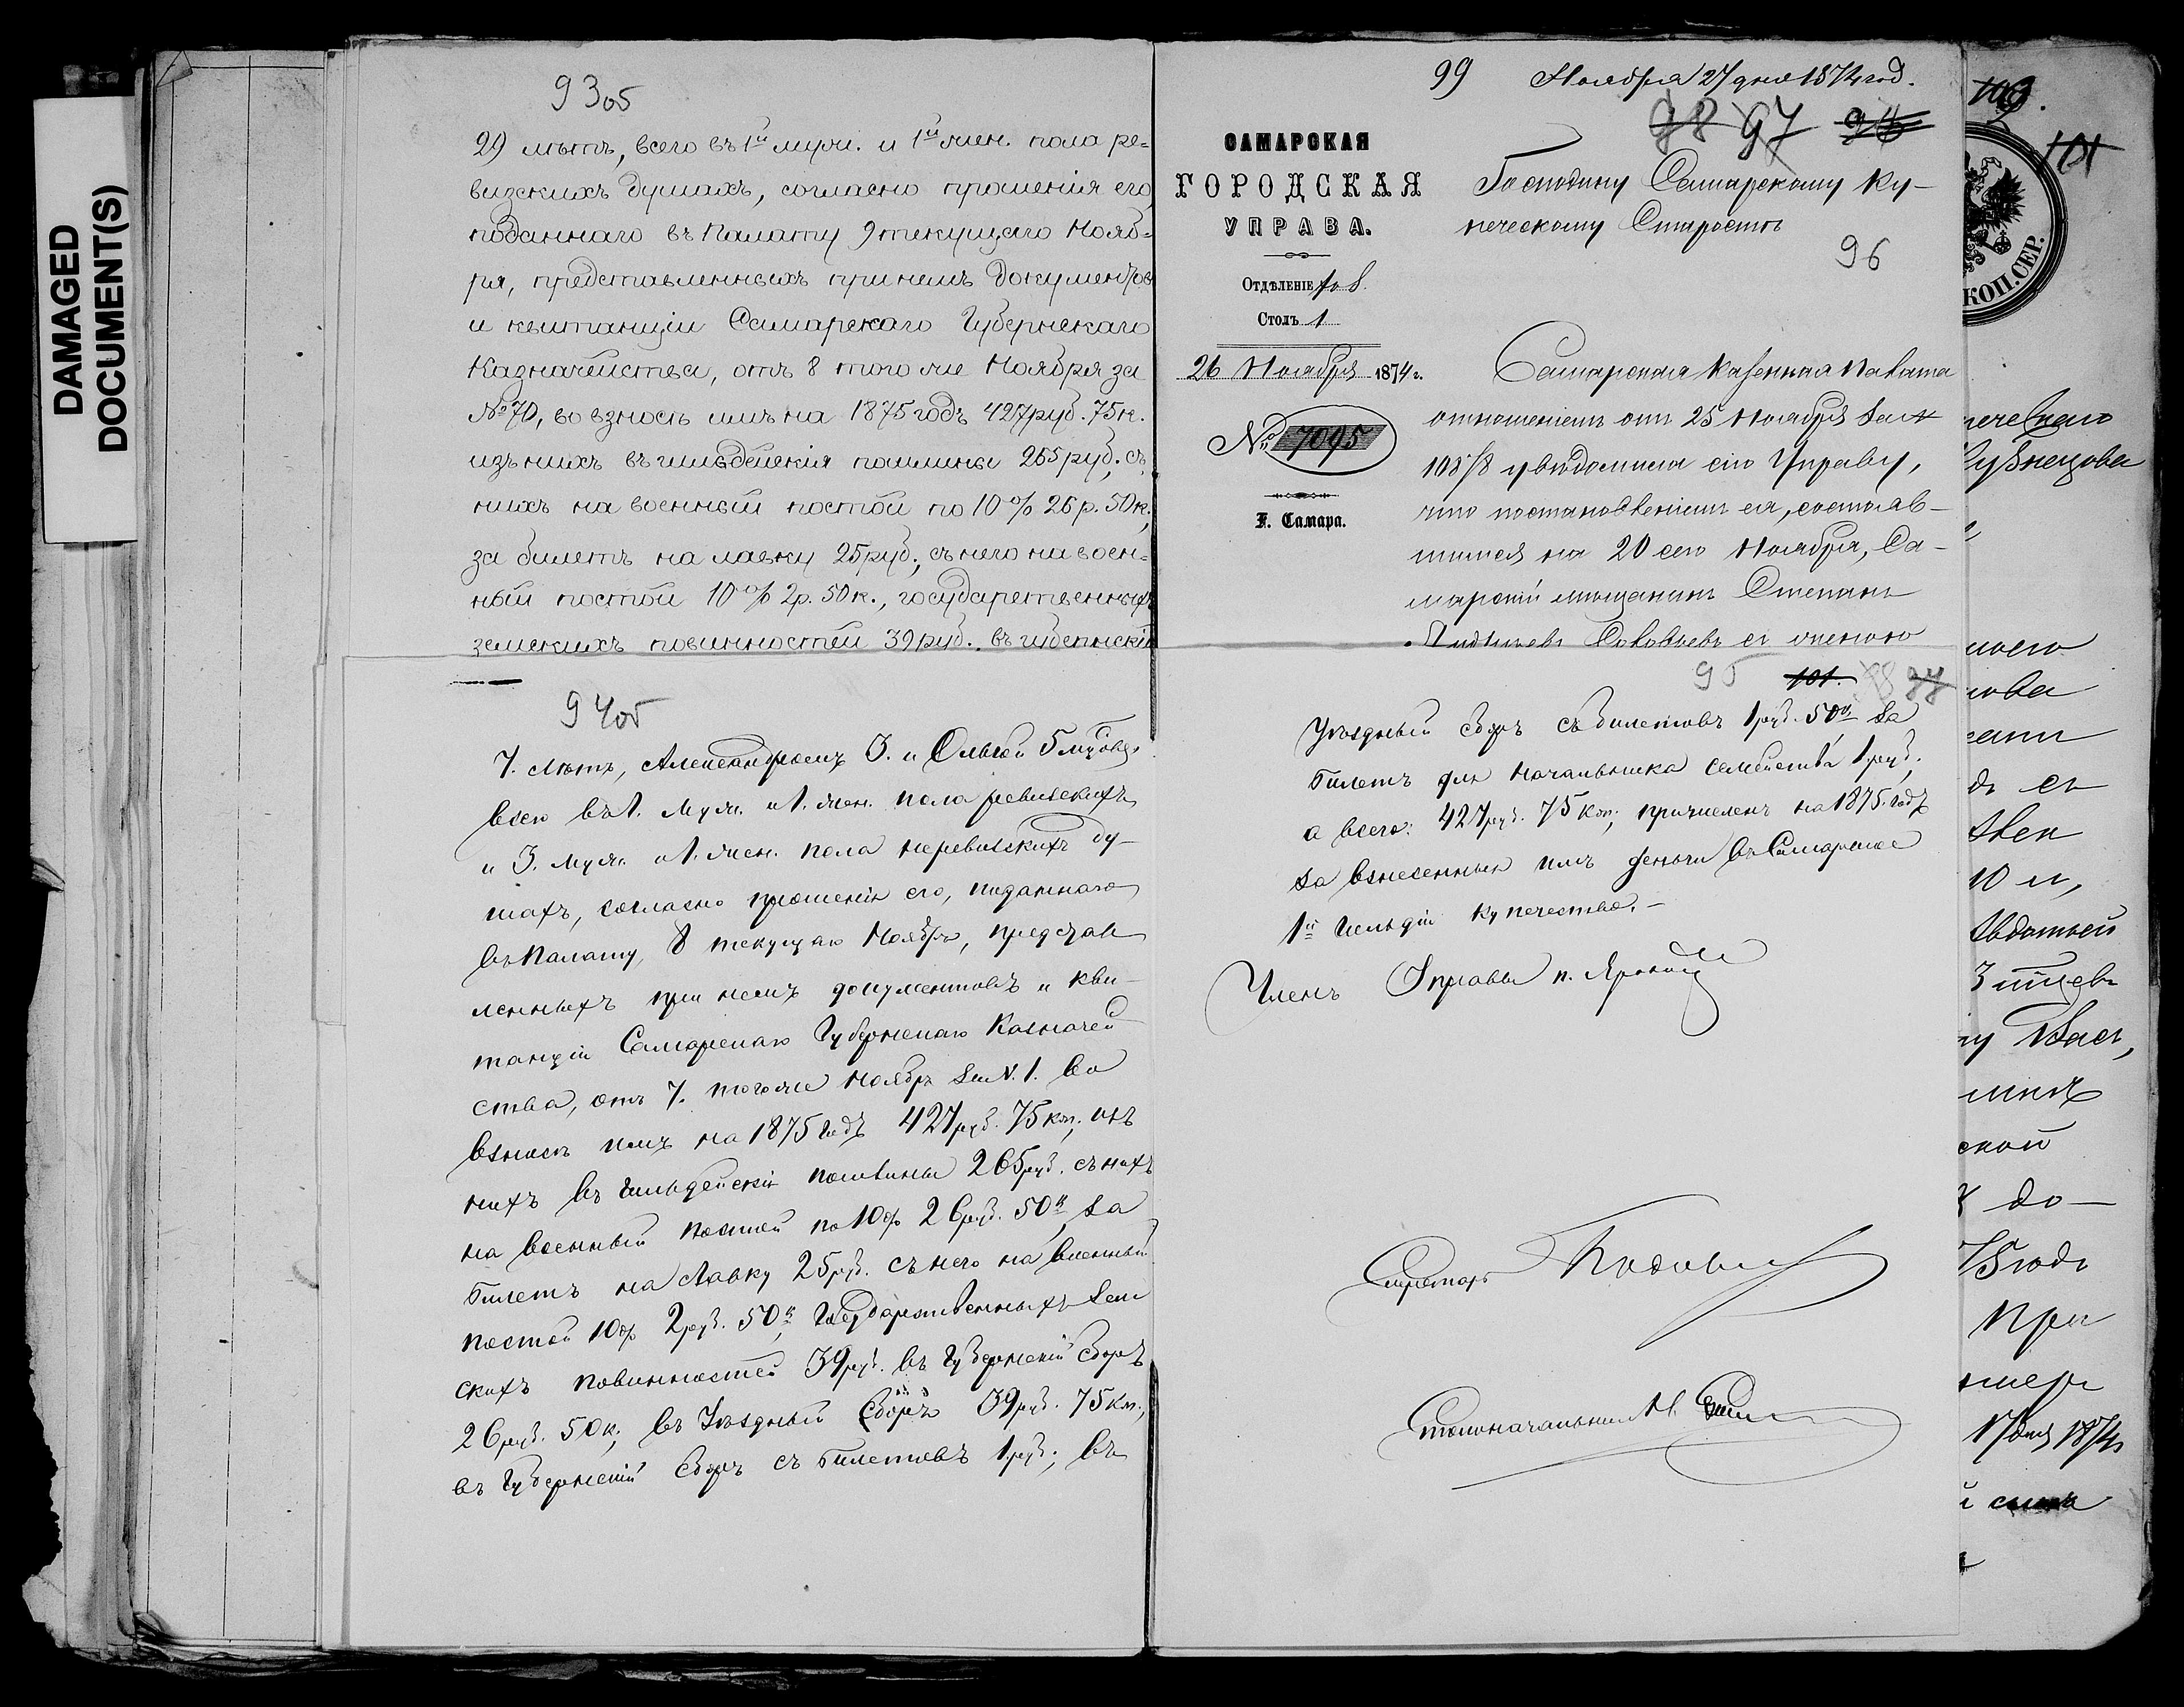 DAMAGED
DOCUMENT(S)
93об
29 лѣтъ, всего въ 1й муж. и 1й жен. пола ре=
визскихъ душахъ, согласно прошенія его
поданнаго въ Палату 9 текущаго Нояб=
ря, представленныхъ при немъ документовъ
и квитанціи Самарскаго Губернскаго
Казначейства, отъ 8 того же Ноября за
№ 70, во взносѣ имъ на 1875 годъ 427 руб. 75 к.
изъ нихъ въ гильдейскія пошлины 265 руб., съ
нихъ на военный постой по 10% 26 р. 50 к.,
за билетъ на лавку 25 руб., съ него на воен=
ный постой 10% 2 р. 50 к., государственныхъ
земскихъ повинностей 39 руб., въ губернскій
94об
7. лѣтъ, Александромъ 3. и Ольгой 5 мѣсяцевъ
всего въ 1. муж. и 1. жен. пола ревизскихъ
и 3. муж. и 1. жен. пола неревизскихъ ду-
шахъ, согласно прошенія его, поданнаго
въ Палату, 8 текущаго Ноября, представ
ленныхъ при немъ документовъ и кви-
танціи Самарскаго Губернскаго Казначей
ства, отъ 7. того же Ноября за N. 1. во
взносѣ имъ на 1875 годъ 427 руб. 75 коп., изъ
нихъ въ гильдейскія пошлины 265 руб. съ нихъ
на военный постой по 10% 26 руб. 50 к, за
билетъ на лавку 25 руб. съ него на военный
постой 10% 2 руб. 50 к, Государственныхъ Зем
скихъ повинностей 39 руб. въ Губернскій сборъ
26 руб. 50 к, въ Уѣздный Сборъ 39 руб. 75 коп.,
въ Губернскій сборъ съ билетовъ 1 руб; въ
99 Ноября 27 дня 1874 год.
98 97
САМАРСКАЯ
ГОРОДСКАЯ
УПРАВА.
Отдѣленіе
Столъ 1
26 Ноября 1874 г.
№ 7095
Г. Самара.
Господину Самарскому Ку-
печескому Старостѣ
96
Самарская Казенная Палата
отношеніемъ отъ 25 Ноября за №
увѣдомила сію Управу,
что постановленіемъ ея, состояв-
шимся на 20 сего Ноября, Са-
марскій мѣщанинъ Степанъ
Соловьевъ съ женою
95 101. 98 97
Уѣздный сборъ съ билетовъ 1 руб. 50 к, за
билетъ для начальника семейства 1 руб,
а всего: 427 руб. 75 коп; причисленъ на 1875. годъ
за взнесенныя имъ деньги въ Самарское
1й гильдіи купечество.-
Членъ Управы
Секретарь
Столоначальникъ
КОП. СЕР.
101
печескаго
Кузнецова
моего
10 м,
Авдотьей
ской
до-
При